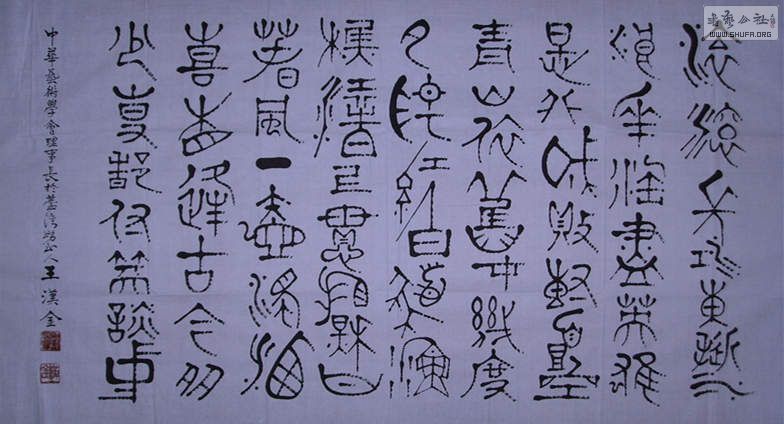 滾滾長江東逝水
浪花淘盡英雄
是非成敗轉頭空
青山依舊在幾度
夕陽紅白髮漁
樵渚上慣看秋月
春風一壺濁酒
喜相逢古今多
少事都付笑談中
中華藝術學會理事長於臺灣人王漢金
WWW.SHUFA.ORG